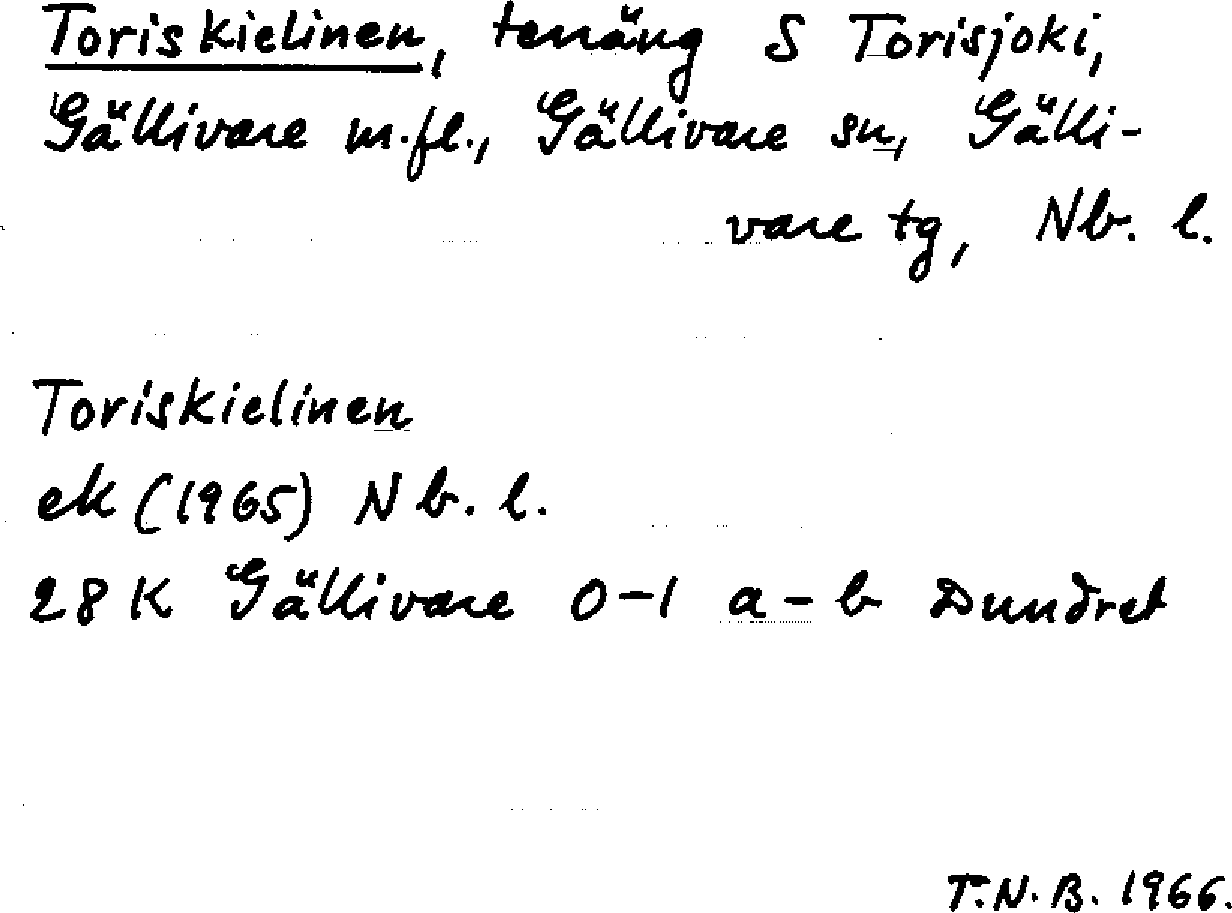 Toriskielinen, terräng S Torisjoki,
Gällivare m.fl., Gällivare sn, Gälli-
vare tg, Nb. l.
Toriskielinen
ek (1965) Nb. l.
28 K Gällivare 0-1 a-b Dundret
T.N.B. 1966.